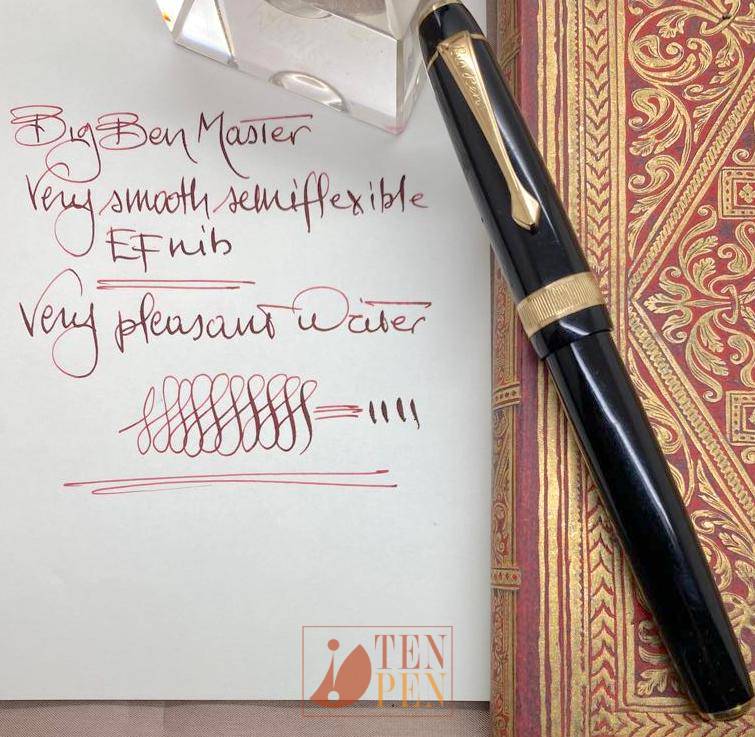 Big Ben Master
Very smooth semiflexible
EF nib
Very pleasant Writer
TEN
PEN